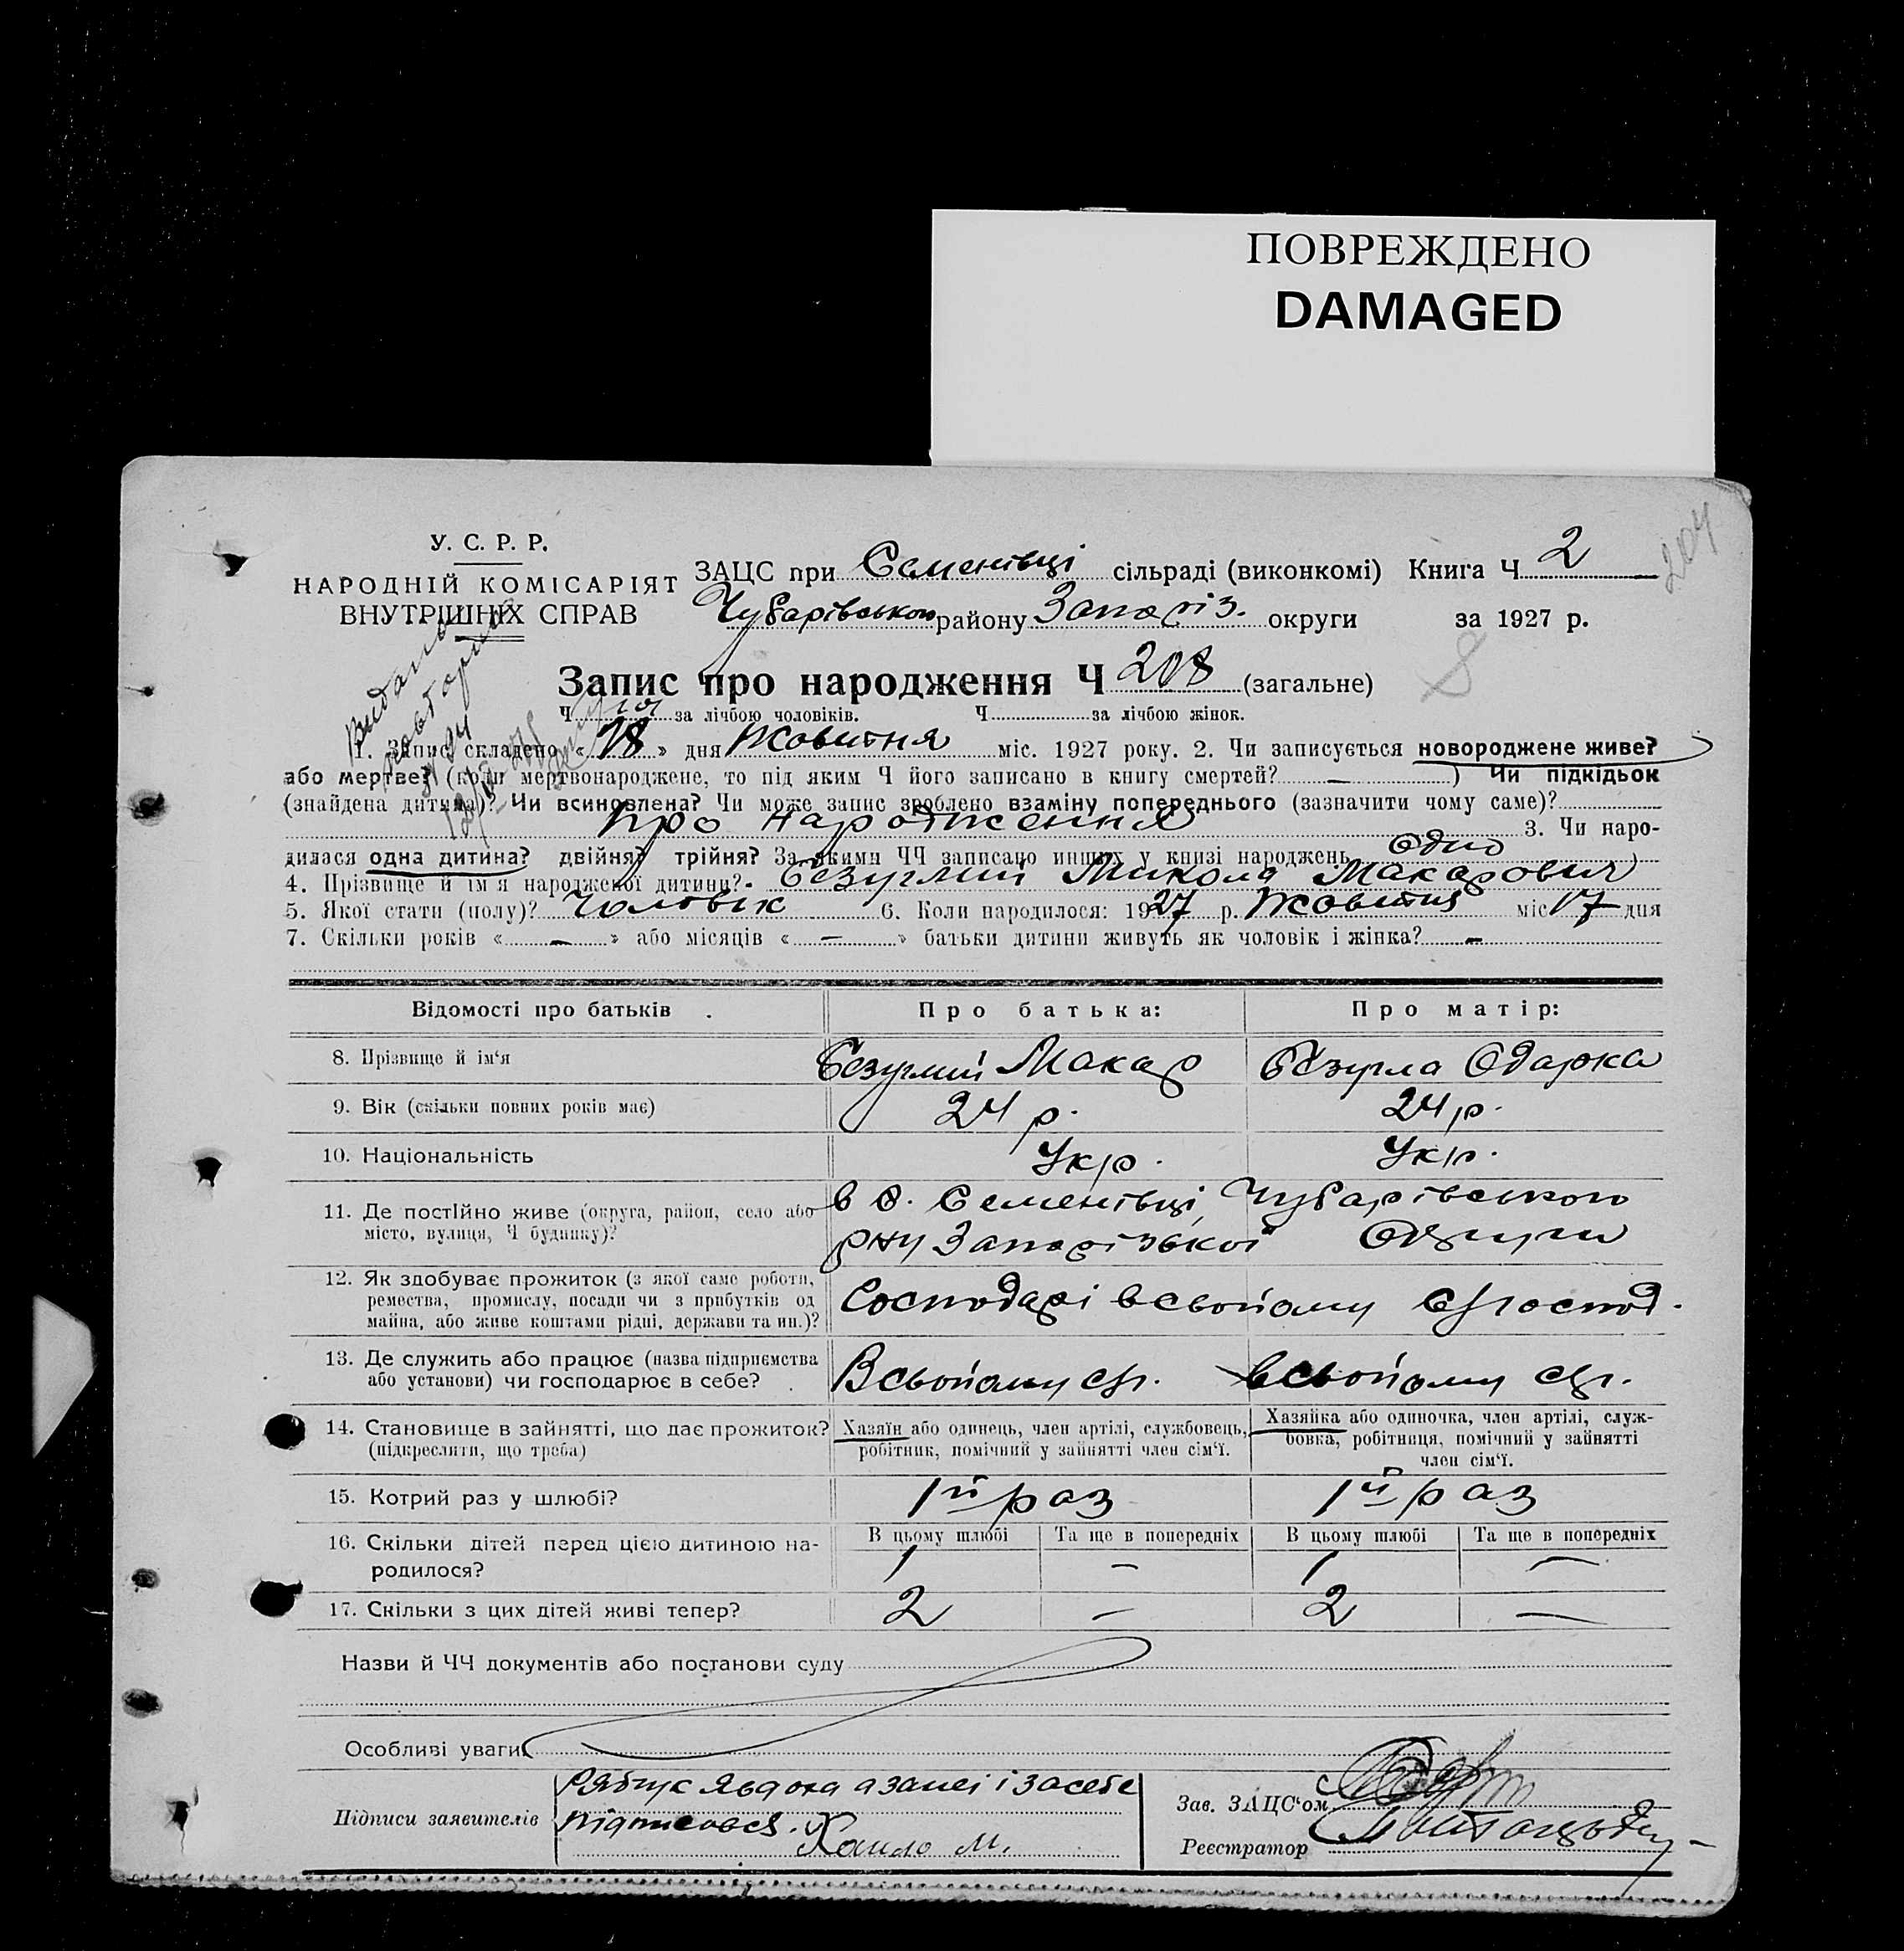 ПОВРЕЖДЕНО
DAMAGED
204
У. С. Р. Р.
НАРОДНІЙ КОМІСАРІЯТ
ВНУТРІШНІХ СПРАВ
ЗАЦС при Семенівці сільраді (виконкомі) Книга Ч 2
Чубарівського району Запоріз. округи за 1927 р.
Запис про народження Ч 208 (загальне)
8
Ч за лічбою чоловіків. Ч за лічбою жінок.
Видано
повторно
1. Запис складено « 18 » дня Жовтня міс. 1927 року. 2. Чи записується новороджене живе?
або мертве? (коли мертвонароджене, то під яким Ч його записано в книгу смертей? — ) Чи підкідьок
(знайдена дитина)? Чи всиновлена? Чи може запис зроблено взаміну попереднього (зазначити чому саме)?
про народження 3. Чи наро-
дилася одна дитина? двійня? трійня? За якими ЧЧ записано инших у книзі народжень одно
4. Прізвище й ім'я народженої дитини? Безуглий Микола Макарович
5. Якої стати (полу)? Чоловік 6. Коли народилося: 1927 р. Жовтня міс 17 дня
7. Скільки років « — » або місяців « — » батьки дитини живуть як чоловік і жінка? —
Відомості про батьків Про батька: Про матір:
8. Прізвище й ім'я Безуглий Макар Безугла Одарка
9. Вік (скільки повних років має) 24 р. 24 р.
10. Національність Укр. Укр.
11. Де постійно живе (округа, район, село або місто, вулиця, Ч будинку)? в с. Семенівці, Чубарівського
р-ну Запорізької Округи
12. Як здобуває прожиток (з якої саме роботи,
ремества, промислу, посади чи з прибутків од
майна, або живе коштами рідні, держави та ин.)?
Господарі в свойому
13. Де служить або працює (назва підприємства
або установи) чи господарює в себе?
В свойому в свойому
14. Становище в зайнятті, що дає прожиток?
(підкреслити, що треба)
Хазяїн або одинець, член артілі, службовець,
робітник, помічний у зайнятті член сім'ї.
Хазяйка або одиночка, член артілі, служ-
бовка, робітниця, помічний у зайнятті
член сім'ї.
15. Котрий раз у шлюбі? 1й раз 1й раз
В цьому шлюбі Та ще в попередніх В цьому шлюбі Та ще в попередніх
16. Скільки дітей перед цією дитиною на-
родилося?
1 — 1 —
17. Скільки з цих дітей живі тепер? 2 — 2 —
Назви й ЧЧ документів або постанови суду
Особливі уваги
Підписи заявителів
Рябчук Явдоха а за неї і за себе
підписався.
Хаило М.
Зав. ЗАЦС'ом
Реєстратор